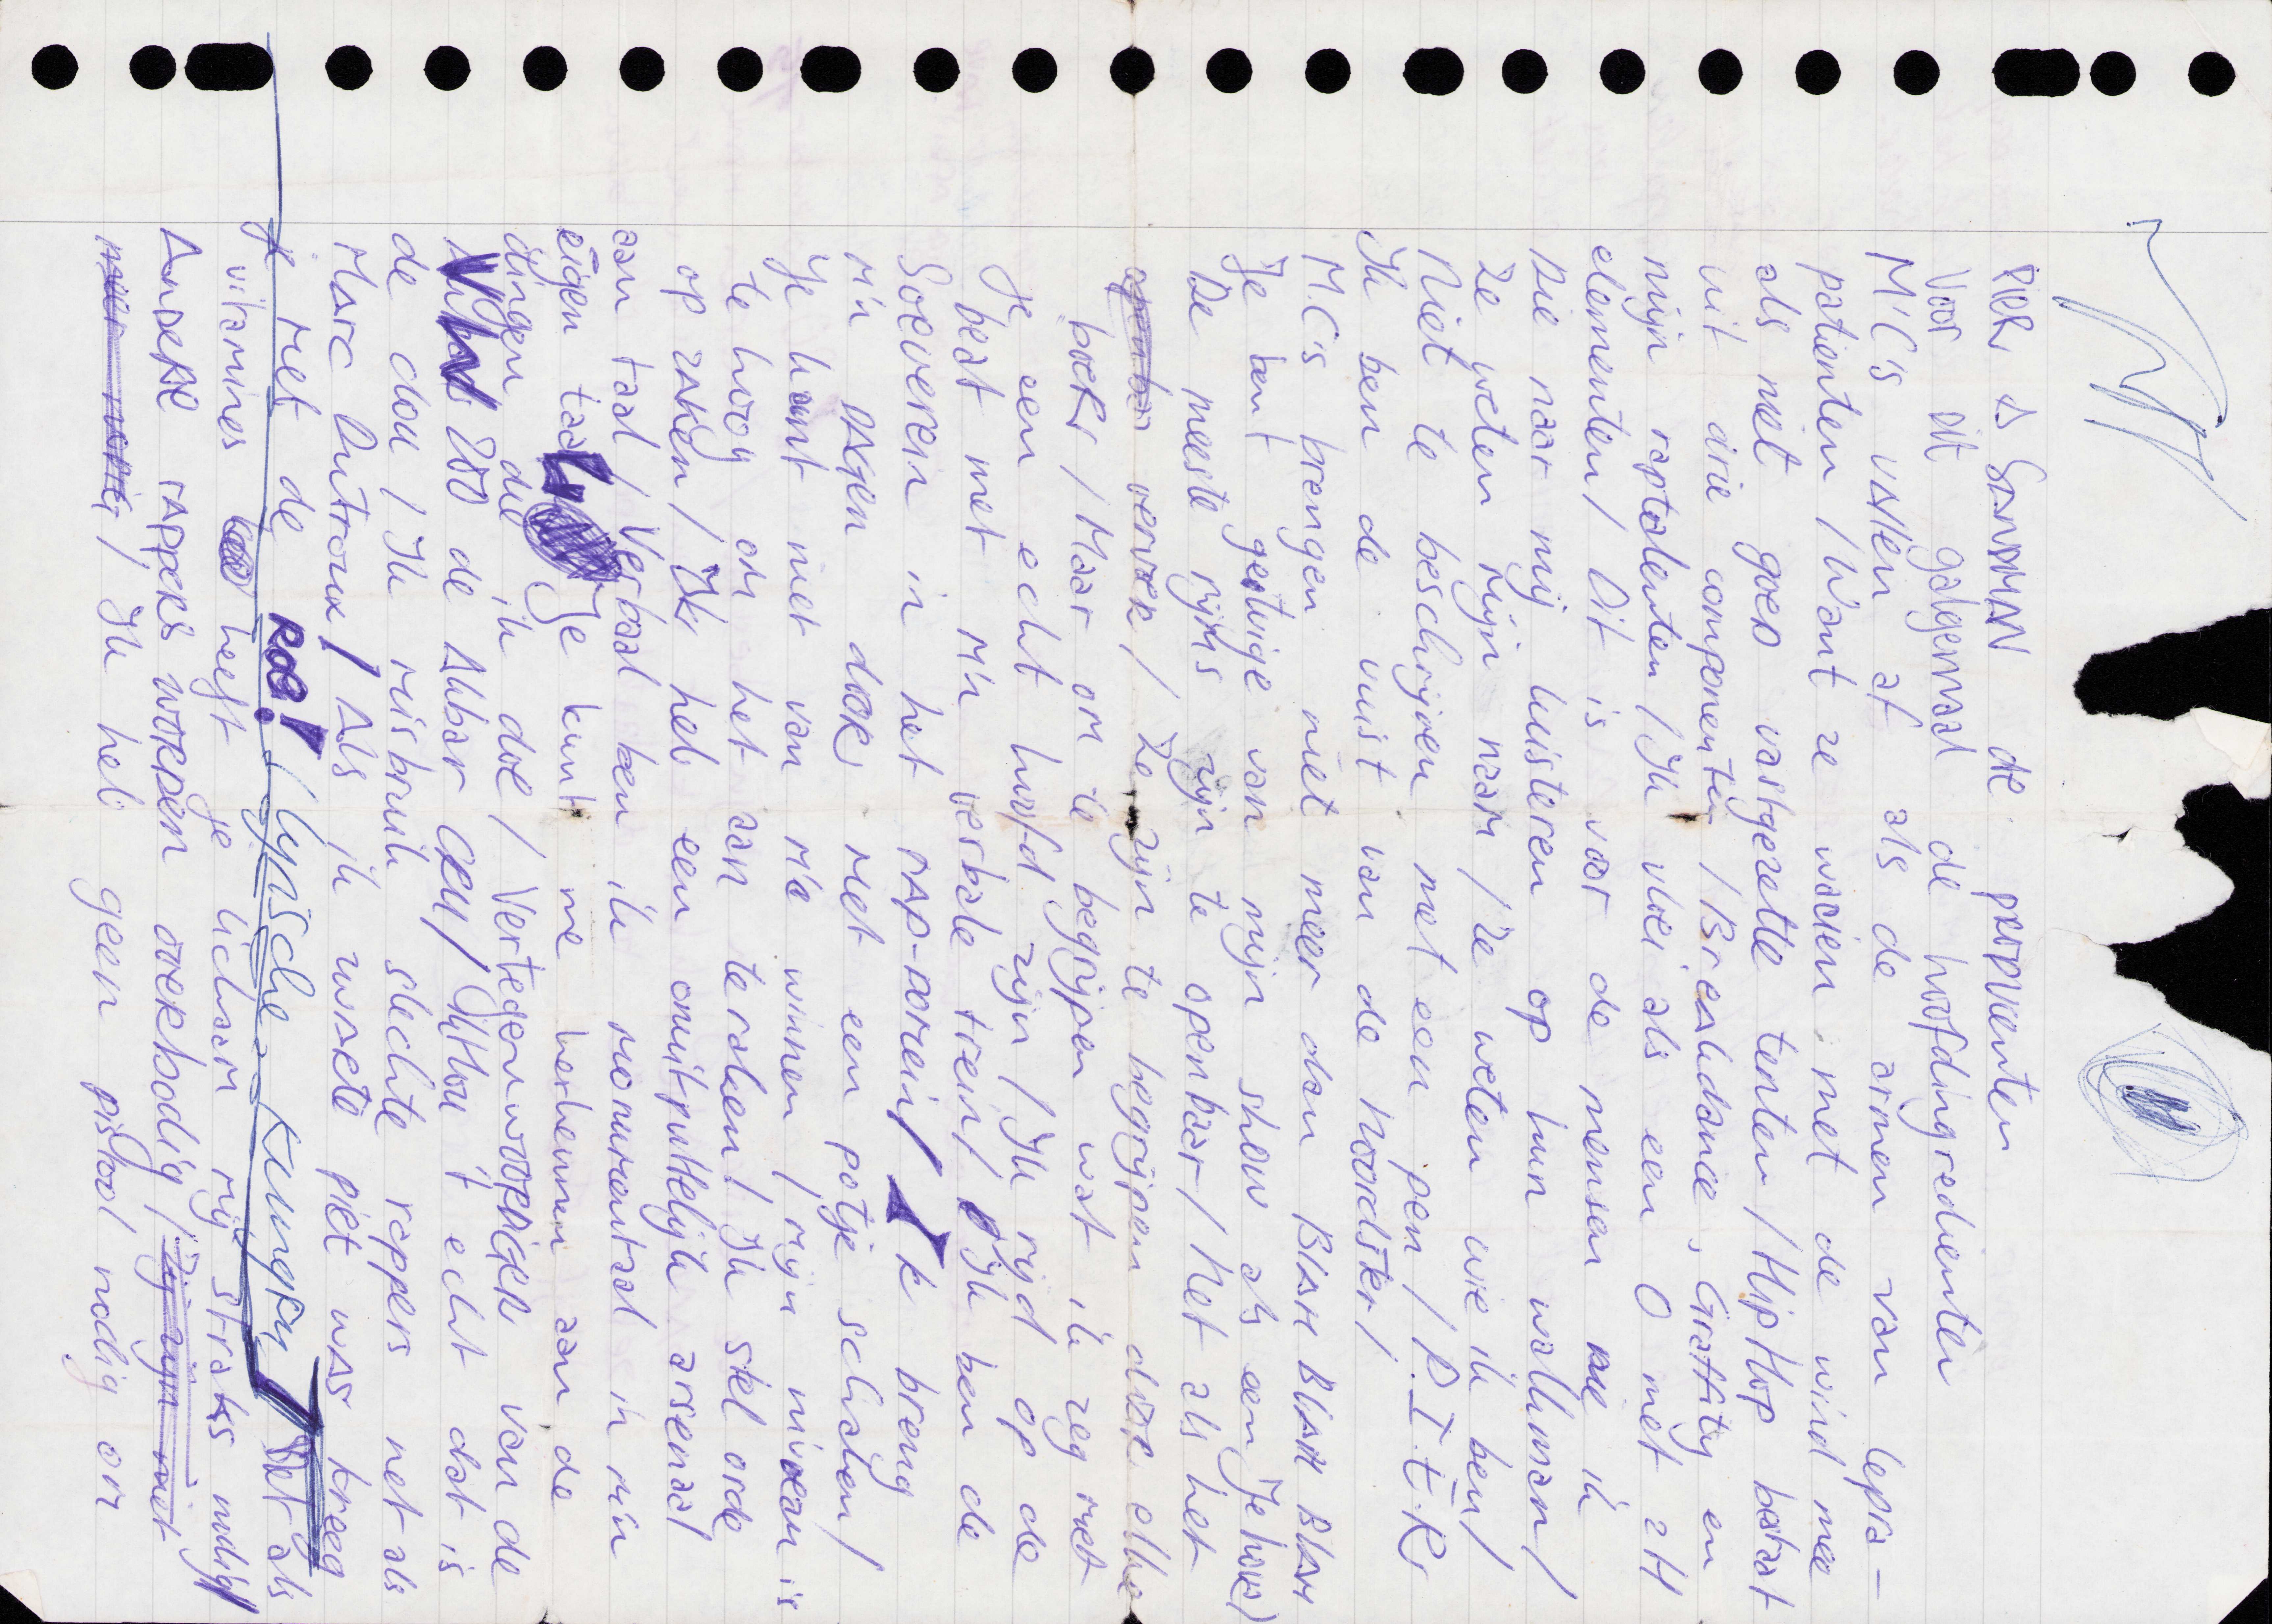 PIER is SANDMAN de promoenten
Voor dit galgenmaal de hoofdingredienten
M'C's vallen af als de armen van lepra-
patienten / Want ze waaien met de wind mee
als niet goed vastgezette tenten / HipHop bestaat
uit drie componenten / Breakdance, Graffity en
mijn raptalenten / Ik vloei als een O met 2H
elementen / Dit is voor de mensen die ik
Die naar mij luisteren op hun walkman /
Ze weten mijn naam / Ze weten wie ik ben /
Niet te beschrijven met een pen / P.I.E.R.
Ik ben de vuist van de Noordster /
M.C's brengen niet meer dan BLAH BLAH BLAH
Je bent getuige van mijn show als een Jehova)
De meeste rijms zijn te openbaar / Net als het
openbaar vervoer / Ze zijn te begrijpen door elke
boer / Maar om te begrijpen wat ik zeg moet
Je een echt hoofd zijn / Ik rijd op de
beat met m'n verbale trein / Ik ben de
Soeverein in het rap-domein / Ik breng
m'n dagen door met een potje schaken /
Je kunt niet van me winnen / mijn niveau is
te hoog om het aan te raken / Ik stel orde
op zaken / Ik heb een onuitputtelijk arsenaal
aan taal / Verbaal ben ik monumentaal in m'n
eigen taal / Je kunt me herkennen aan de
dingen die ik doe / Vertegenwoordiger van de
280 de Akbar CREW / Yithou it echt dat is
de dou / Ik misbruik slechte rappers net als
Marc Dutroux / Als ik zwarte piet was kreeg
Je met de ROE! / Lyrische KungFu / Net als
vitamines heeft je lichaam mij straks nodig /
Andere rappers worden overbodig / Zij zijn niet
meer nodig / Ik heb geen pistool nodig om